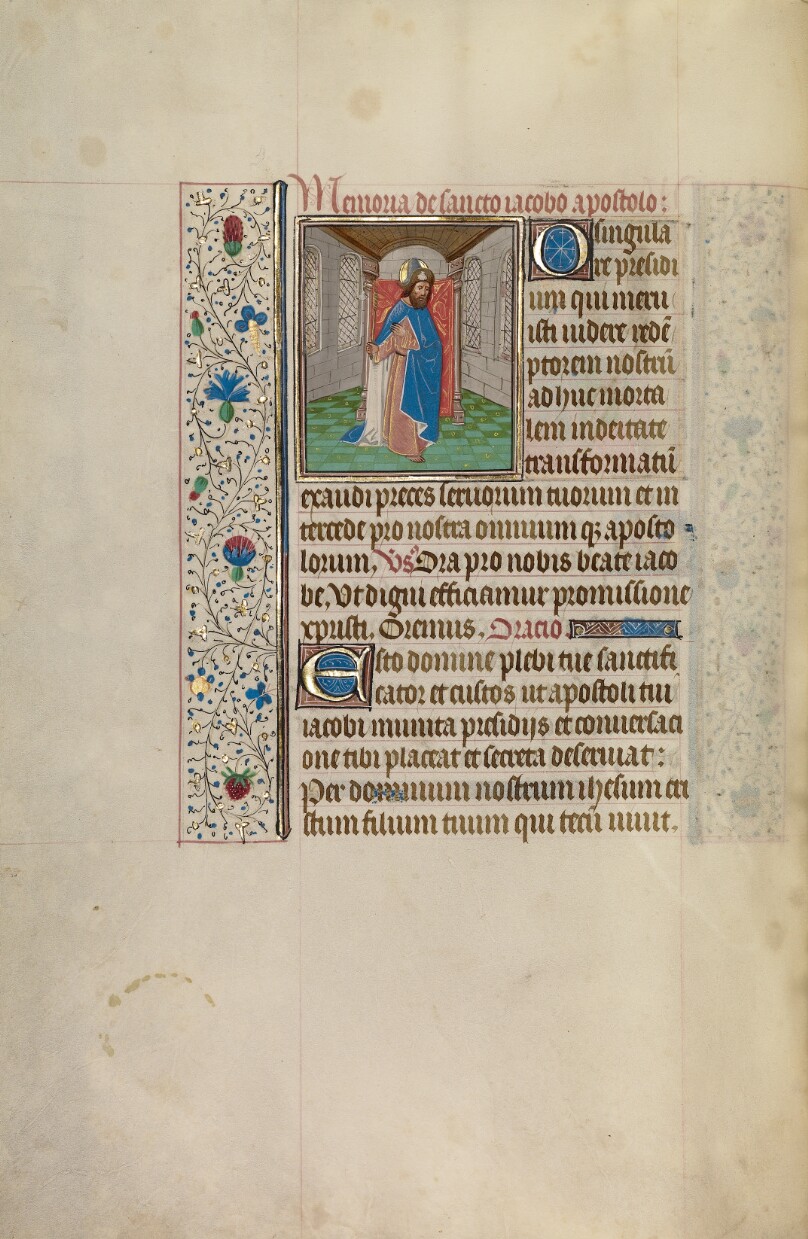 Memoria de sancto iacobo apostolo:
O singula
re presidi
um qui meru
isti uidere redē
ptorem nostrū
adhuc morta
lem indeitate
transformatū
exaudi preces seruorum tuorum et in
tercede pro nostra omnium qz aposto
lorum, vs Ora pro nobis beate iaco
be, Vt digni efficiamur promissione
xpristi. Oremus. Oracio
Esto domine plebi tue sanctifi
cator et custos ut apostoli tui
iacobi munita presidijs et conuersaci
one tibi placeat et secreta deseruiat:
Per dominum nostrum ihesum cri
stum filium tuum qui tecū uiuit.